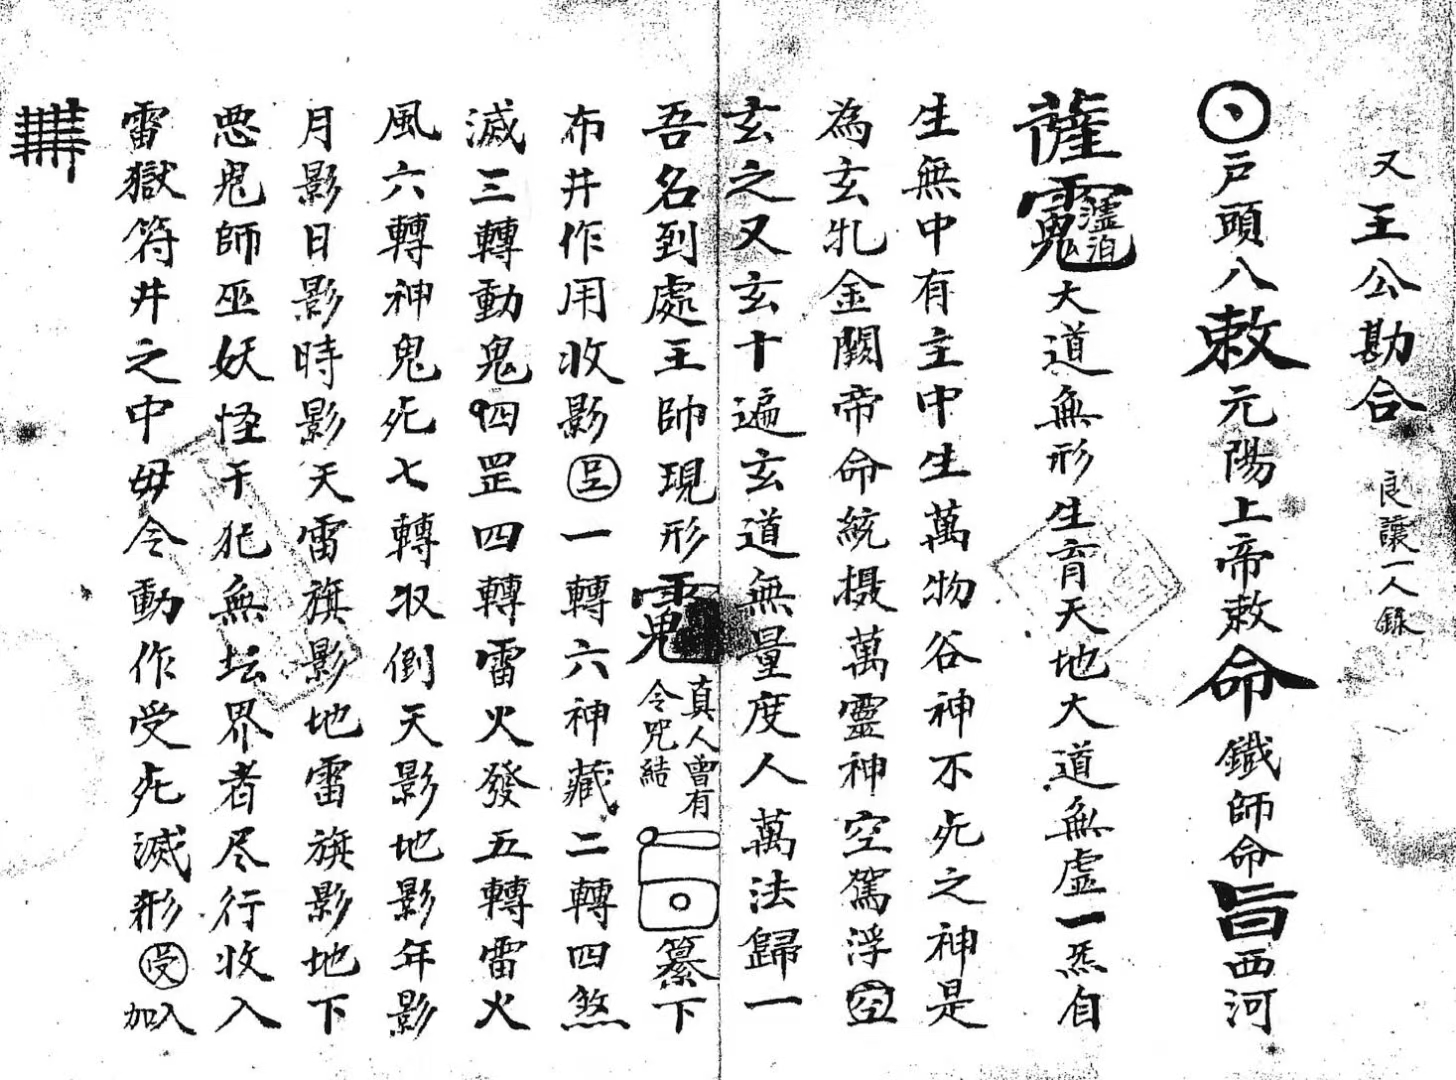 又王公勘合 良讓一人錄
戸頭八敕元陽上帝敕命鐵師命旨西河
薩大道無形生育天地大道無虛一炁自
生無中有主中生萬物谷神不死之神是
為玄牝金闕帝命統摄萬靈神空駕浮空
玄之又玄十遍玄道無量度人萬法歸一
吾名到處王帥現形真人曾有令咒結纂下
布井作用收影一轉六神藏二轉四煞
滅三轉動鬼四罡四轉雷火發五轉雷火
風六轉神鬼死七轉収倒天影地影年影
月影日影時影天雷旗影地雷旗影地下
悪鬼師巫妖怪干犯無坛界者尽行收入
雷獄符井之中毋令動作受死滅形受加入